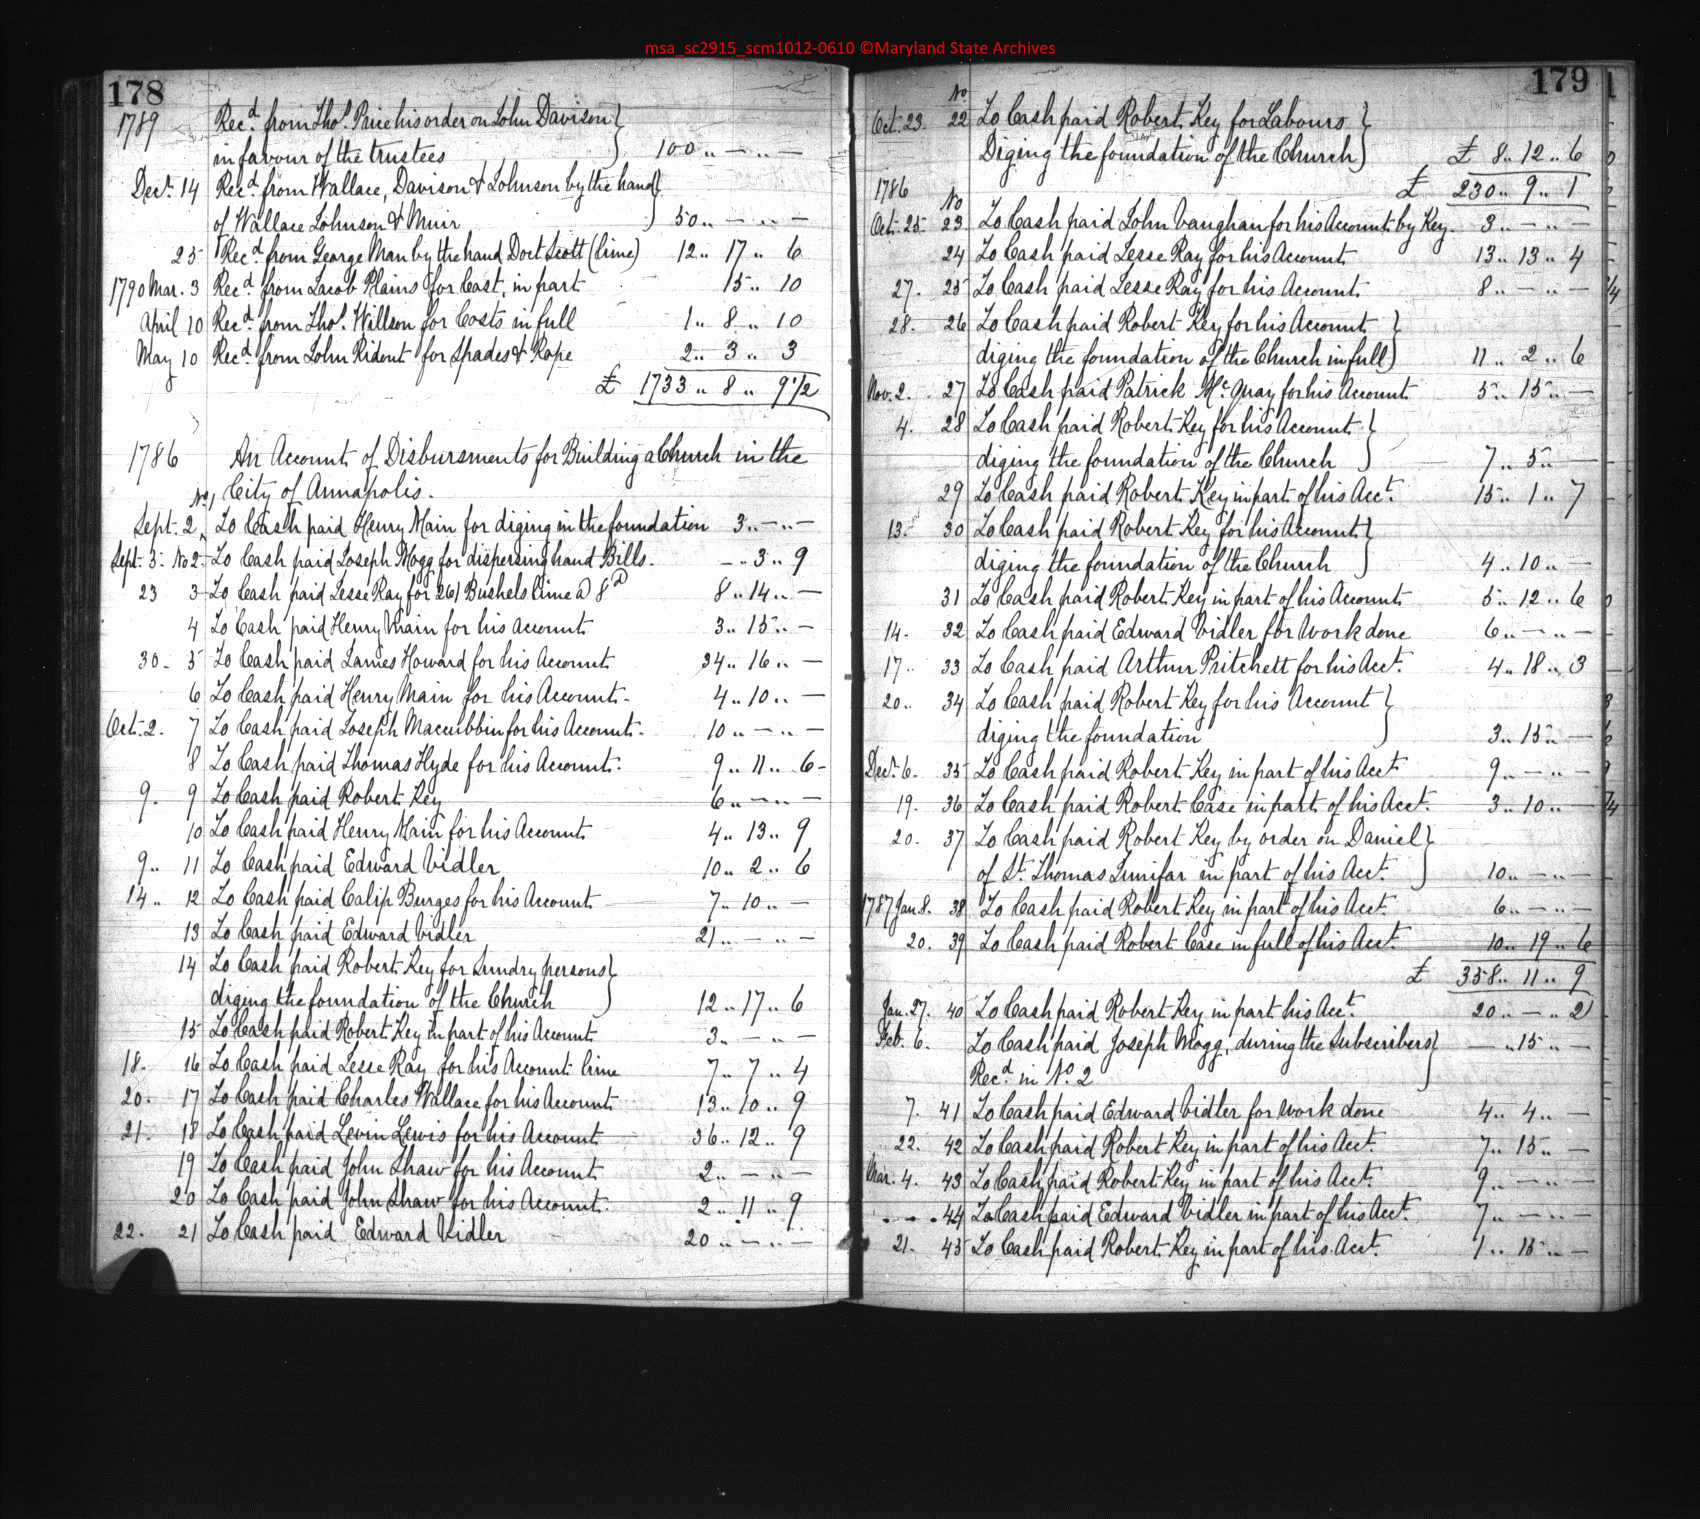 msa_sc2915_scm1012-0610 ©Maryland State Archives
178
1789 Rec.d from Tho.s Price his order on John Davison
in favour of the trustees 100 .. — .. —
Dec.r 14 Rec.d from Wallace, Davison & Johnson by the hand
of Wallace Johnson & Muir 50 .. — .. —
25 Rec.d from George Man by the hand Doct Scott (lime) 12 .. 17 .. 6
1790 Mar. 3 Rec.d from Jacob Plains for Cast, in part 15 .. 10
April 10 Rec.d from Tho.s Willson for Costs in full 1 .. 8 .. 10
May 10 Rec.d from John Ridout for Spades & Rope 2 .. 3 .. 3
£ 1733 .. 8 .. 9 1/2
1786 An Account of Disbursments for Building a Church in the
City of Annapolis.
Sept. 2 No 1 To Cash paid Henry Main for diging in the foundation 3 .. — .. —
Sept. 3. No 2 To Cash paid Joseph Mogg for dispersing hand Bills. — .. 3 .. 9
23 3 To Cash paid Jesse Ray for 261 Bushels Lime @ 8d 8 .. 14 .. —
4 To Cash paid Henry Main for his Account 3 .. 15 .. —
30 - 5 To Cash paid James Howard for his Account 34 .. 16 .. —
6 To Cash paid Henry Main for his Account - 4 .. 10 .. —
Oct. 2. 7 To Cash paid Joseph Maccubbin for his Account - 10 .. — .. —
8 To Cash paid Thomas Hyde for his Account. 9 .. 11 .. 6 -
9. 9 To Cash paid Robert Key 6 .. — .. —
10 To Cash paid Henry Main for his Account 4 .. 13 .. 9
9 .. 11 To Cash paid Edward Vidler 10 .. 2 .. 6
14 .. 12 To Cash paid Calip Burges for his Account 7 .. 10 .. —
13 To Cash paid Edward Vidler 21 .. — .. —
14 To Cash paid Robert Key for Sundry persons
diging the foundation of the Church 12 .. 17 .. 6
15 To Cash paid Robert Key in part of his Account 3 .. — .. —
18. 16 To Cash paid Jesse Ray for his Account lime 7 .. 7 .. 4
20. 17 To Cash paid Charles Wallace for his Account 13 .. 10 .. 9
21. 18 To Cash paid Levin Lewis for his Account 36 .. 12 .. 9
19 To Cash paid John Shaw for his Account 2 .. — .. —
20 To Cash paid John Shaw for his Account. 2 .. 11 .. 9
22. 21 To Cash paid Edward Vidler 20 .. — .. —
179
No
Oct. 23. 22 To Cash paid Robert Key for Labours
Diging the foundation of the Church £ 8 .. 12 .. 6
1786 £ 230 .. 9 .. 1
No
Oct. 25. 23 To Cash paid John Vaughan for his Account by Key 3 .. — .. —
24 To Cash paid Jesse Ray for his Account 13 .. 13 .. 4
27. 25 To Cash paid Jesse Ray for his Account 8 .. — .. —
28. 26 To Cash paid Robert Key for his Account
diging the foundation of the Church in full 11 .. 2 .. 6
Nov. 2. 27 To Cash paid Patrick Mc Quay for his Account 5 .. 15 .. —
4. 28 To Cash paid Robert Key for his Account
diging the foundation of the Church 7 .. 5 .. —
29 To Cash paid Robert Key in part of his Acc.t 15 .. 1 .. 7
13. 30 To Cash paid Robert Key for his Account
diging the foundation of the Church 4 .. 10 .. —
31 To Cash paid Robert Key in part of his Account 5 .. 12 .. 6
14. 32 To Cash paid Edward Vidler for work done 6 .. — .. —
17 .. 33 To Cash paid Arthur Pritchett for his Acct. 4 .. 18 .. 3
20 .. 34 To Cash paid Robert Key for his Account
diging the foundation 3 .. 15 .. —
Dec.r 6. 35 To Cash paid Robert Key in part of his Acct 9 .. — .. —
19. 36 To Cash paid Robert Case in part of his Acct. 3 .. 10 .. —
20. 37 To Cash paid Robert Key by order on Daniel
of St. Thomas Jenifar in part of his Acct. 10 .. — .. —
1787 Jan. 8. 38 To Cash paid Robert Key in part of his Acct. 6 .. — .. —
20. 39 To Cash paid Robert Case in full of his Acct. 10 .. 19 .. 6
£ 358 .. 11 .. 9
Jan. 27. 40 To Cash paid Robert Key in part his Acc.t 20 .. — .. 2
Feb. 6. To Cash paid Joseph Mogg, during the Subscribers — .. 15 .. —
Rec.d in No. 2
7. 41 To Cash paid Edward Vidler for work done 4 .. 4 .. —
22. 42 To Cash paid Robert Key in part of his Acct. 7 .. 15 .. —
Mar. 4. 43 To Cash paid Robert Key in part of his Acct. 9 .. — .. —
. - . 44 To Cash paid Edward Vidler in part of his Acct. 7 .. — .. —
21. 45 To Cash paid Robert Key in part of his Acct. 1 .. 15 .. —